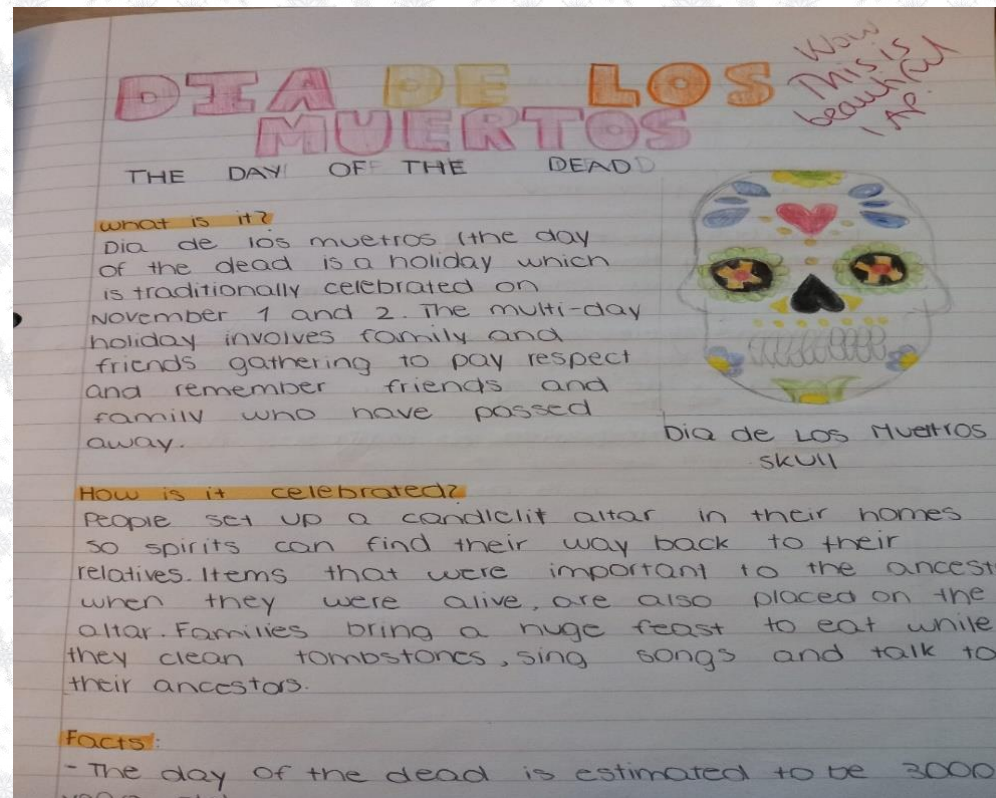 DIA DE LOS
MUERTOS
Wow
This is
beautiful
1 AP.
THE DAY OF THE DEAD
what is it?
Dia de los muetros (the day
of the dead is a holiday which
is traditionally celebrated on
November 1 and 2. The multi-day
holiday involves family and
friends gathering to pay respect
and remember friends and
family who have passed
away.
Dia de Los Muetros
skull
How is it celebrated?
People set up a candlelit altar in their homes
so spirits can find their way back to their
relatives. Items that were important to the ancest
when they were alive, are also placed on the
altar. Families bring a huge feast to eat while
they clean tombstones, sing songs and talk to
their ancestors.
Facts:
- The day of the dead is estimated to be 3000